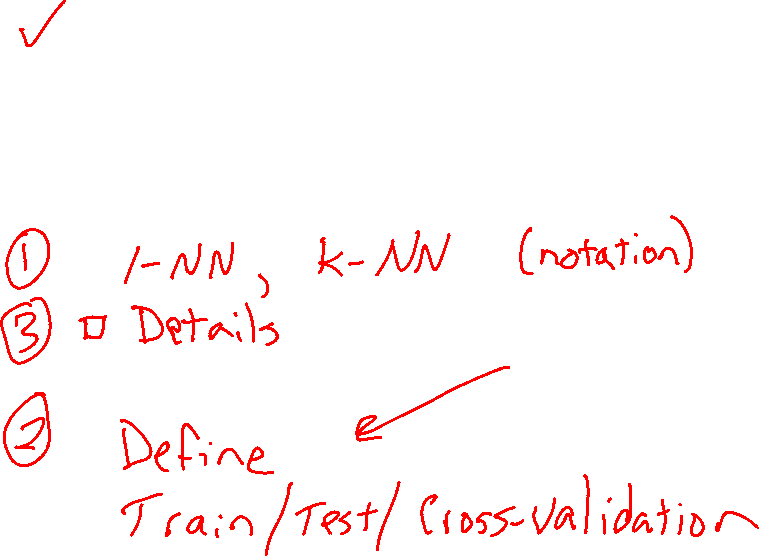 ① 1-NN, k-NN (notation)
③ □ Details
② Define
Train/Test/Cross-validation